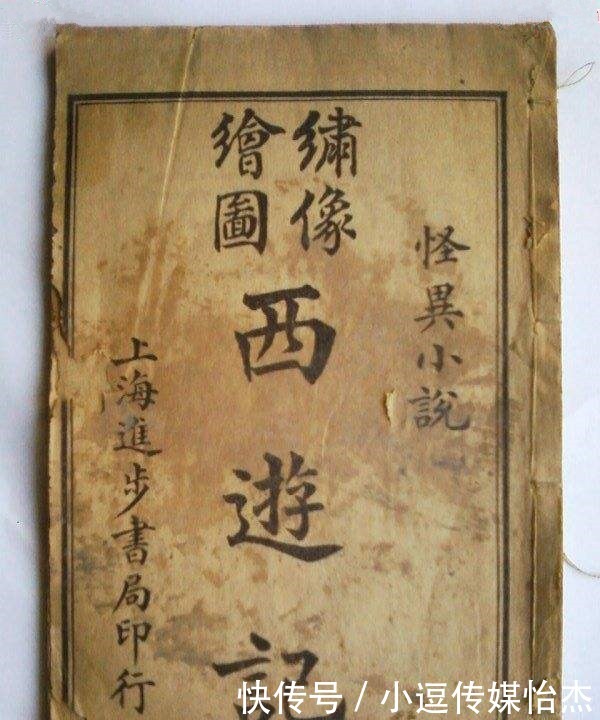 怪異小說
繡像
繪圖
西遊記
上海進步書局印行
快传号 / 小逗传媒怡杰